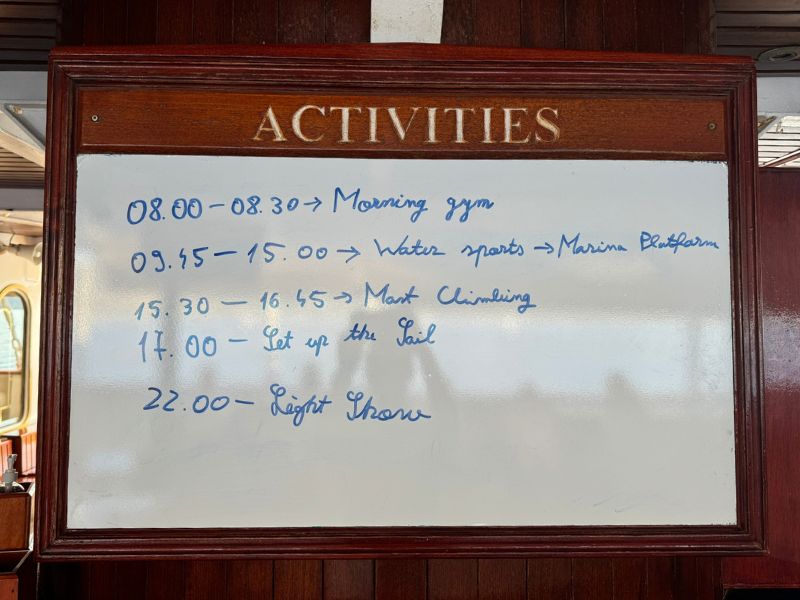 ACTIVITIES
08.00 – 08.30 → Morning gym
09.45 – 15.00 → Water sports → Marina Platform
15.30 – 16.45 → Mast Climbing
17.00 – Set up the Sail
22.00 – Light Show